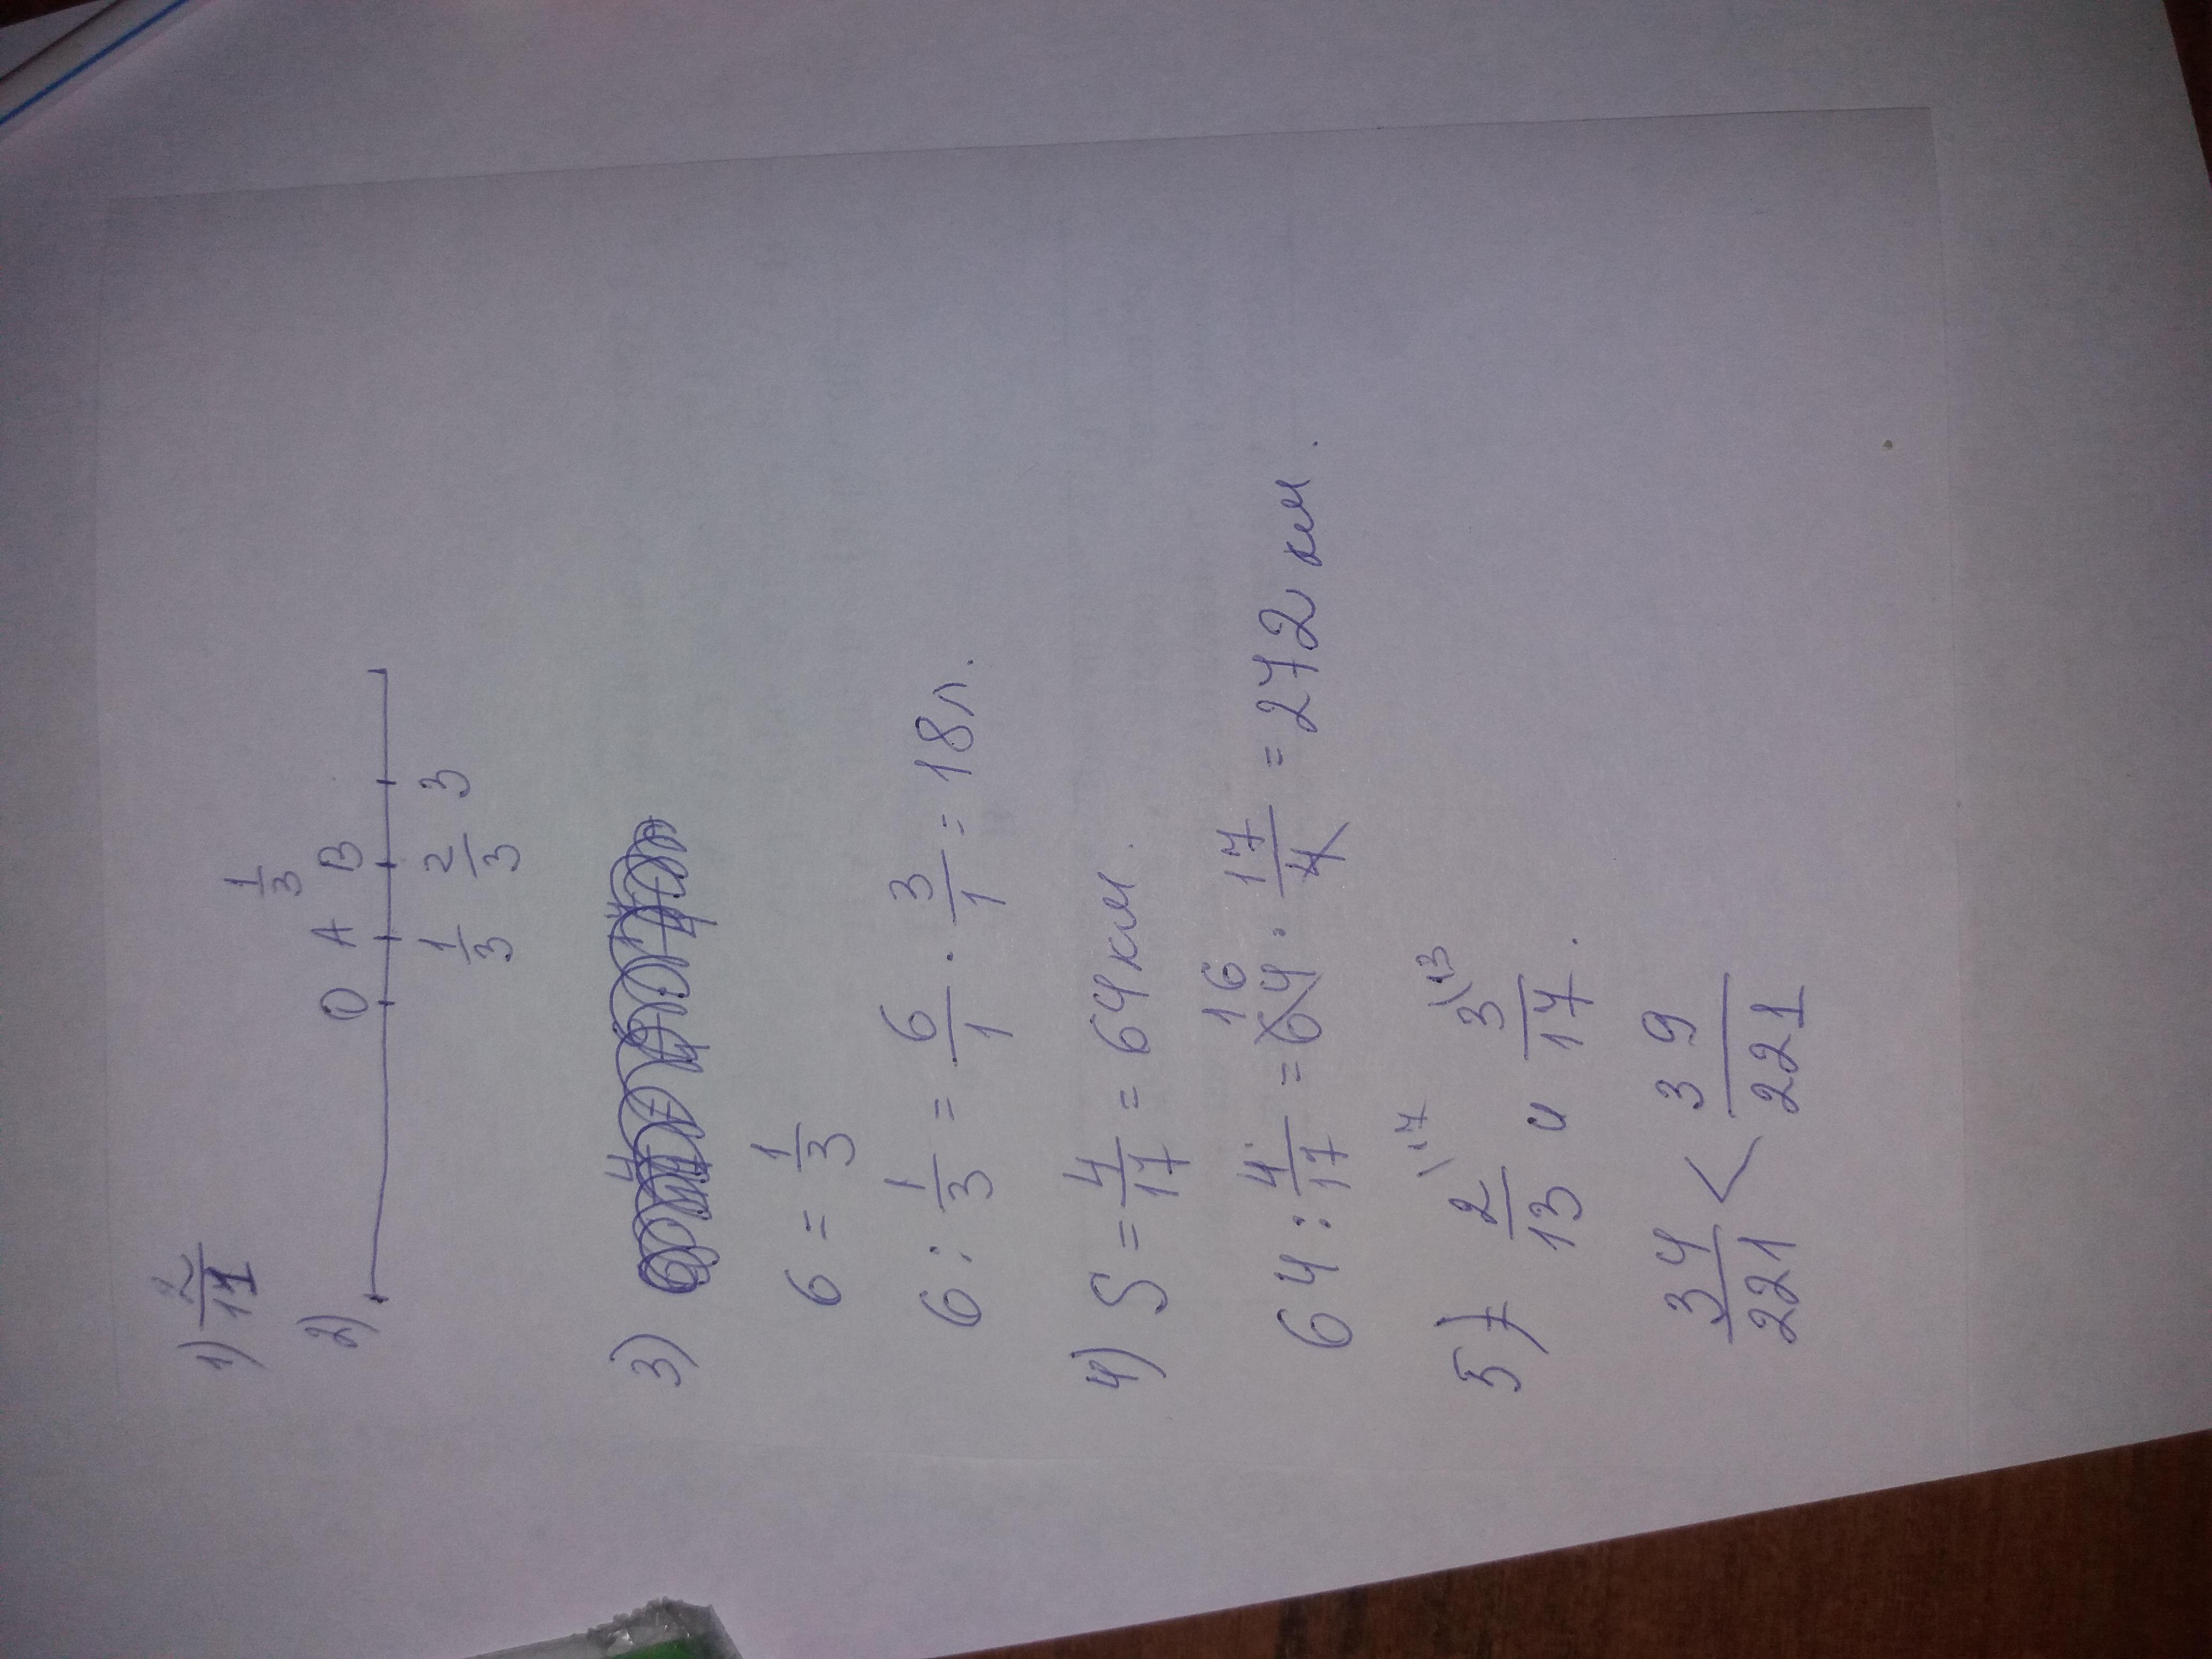 1) 2/11
2)
1/3
O A B
1/3 2/3 3
3)
6 = 1/3
6 : 1/3 = 6/1 · 3/1 = 18 л.
4) S = 4/17 = 64 км.
16
64 : 4/17 = 64 · 17/4 = 272 км.
5) 2/13 \17 и 3/17 \13.
34/221 < 39/221